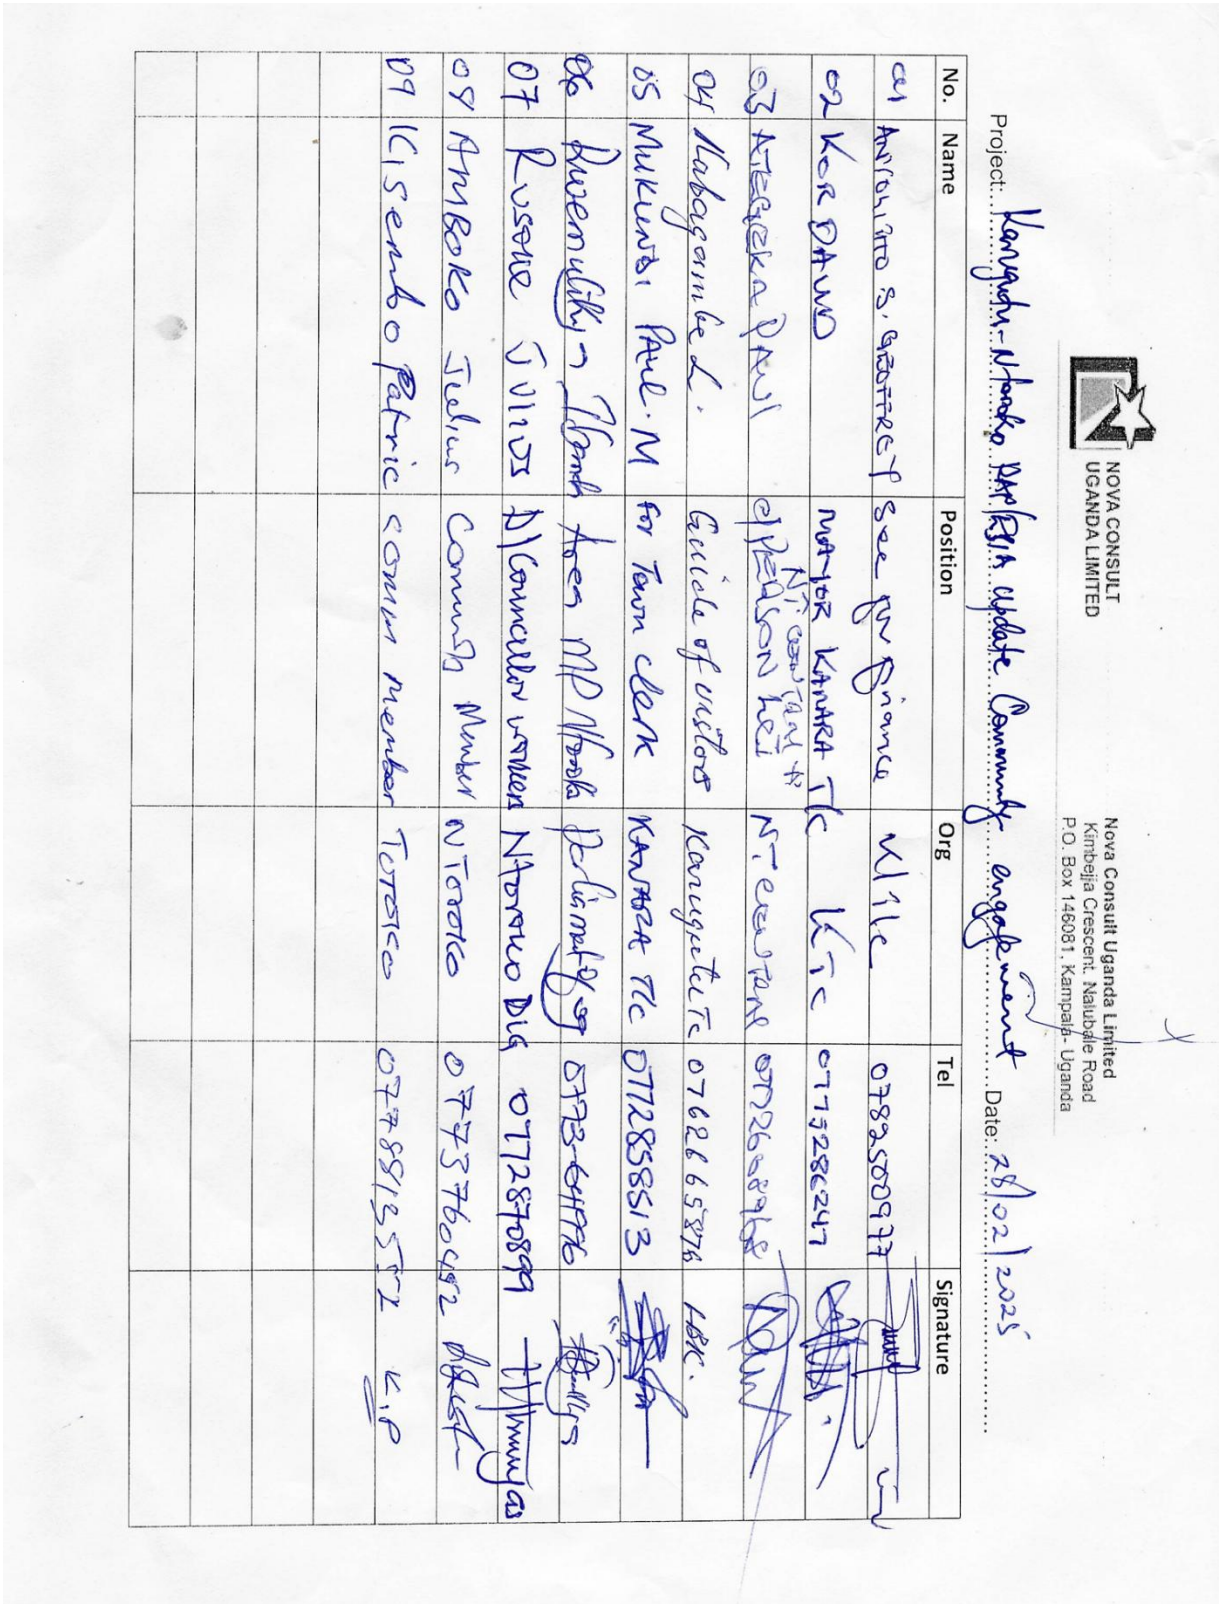 NOVA CONSULT
UGANDA LIMITED
Nova Consult Uganda Limited
Kimbejja Crescent. Nalubale Road
P.O. Box 146081, Kampala- Uganda
Project: Karugutu-Ntoroko RAP/ESIA update Community engagement Date: 28/02/2025
No. Name Position Org Tel Signature
01 S. GEOFFREY Sec for finance K/T/c 0782500977
02 KOR DAVID MAYOR KANARA T/c KTc 0775286247
03 ATEGEKA PAUL C/PERSON LCI NT CENTRAL
04 Kabagambe L. Guide of visitors Karugutu Tc 0762665876 HBK.
05 MUKUNDI PAUL. M For Town Clerk KANARA T/c 0772858513
06 Rwemulikya Area MP Ntoroko
07 RUSOKE JULIUS D/Councellor Ntoroko DLG 0772870899
08 AMBOKO Julius Community Member NTOROKO 0773760492
09 Kisembo Patric comm member TOROKO 0778813552 K.P